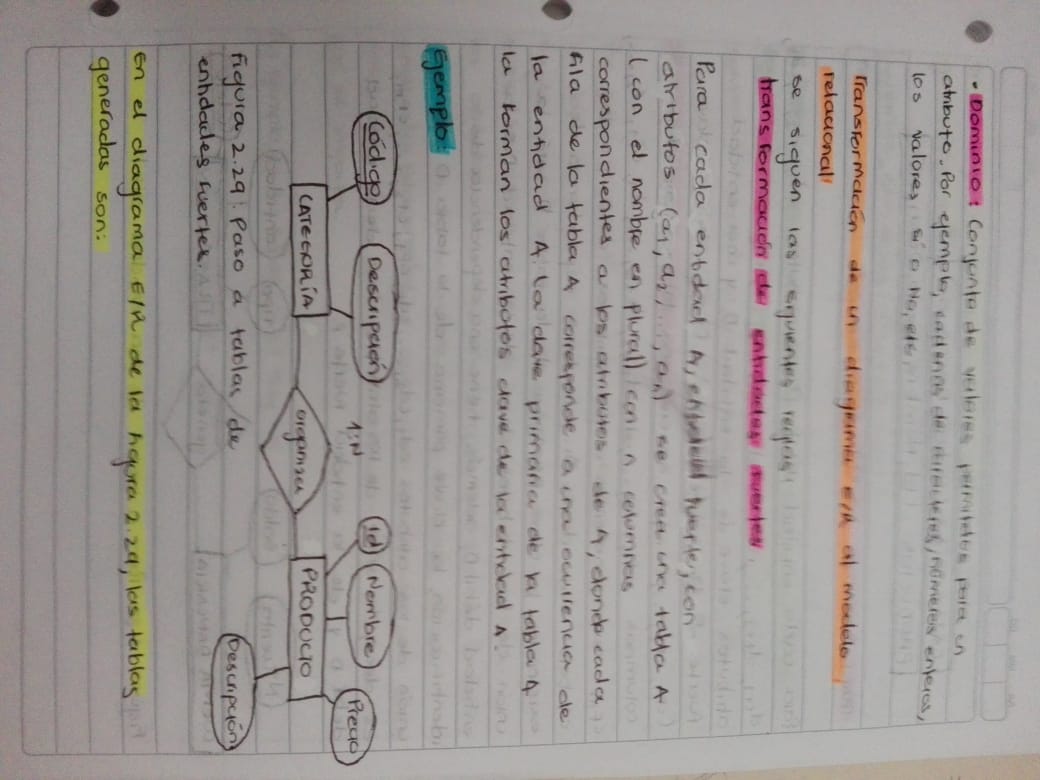 • Dominio: Conjunto de valores permitidos para un
atributo. Por ejemplo, cadenas de caracteres, números enteros,
los valores sí o No, etc
Transformación de un diagrama E/R al modelo
relacional:
se siguen las siguientes reglas
transformación de entidades fuertes
Para cada entidad A, entidad fuerte, con
atributos (a1, a2, ..., an) se crea una tabla A
(con el nombre en plural) con n columnas
correspondientes a los atributos de A, donde cada
fila de la tabla A corresponde a una ocurrencia de
la entidad A. La clave primaria de la tabla A
la forman los atributos clave de la entidad A
Ejemplo:
Código
Descripción
1:N
Id
Nombre
Precio
CATEGORÍA
organiza
PRODUCTO
Descripción
Figura 2.29: Paso a tablas de
entidades fuertes.
En el diagrama E/R de la figura 2.29, las tablas
generadas son: